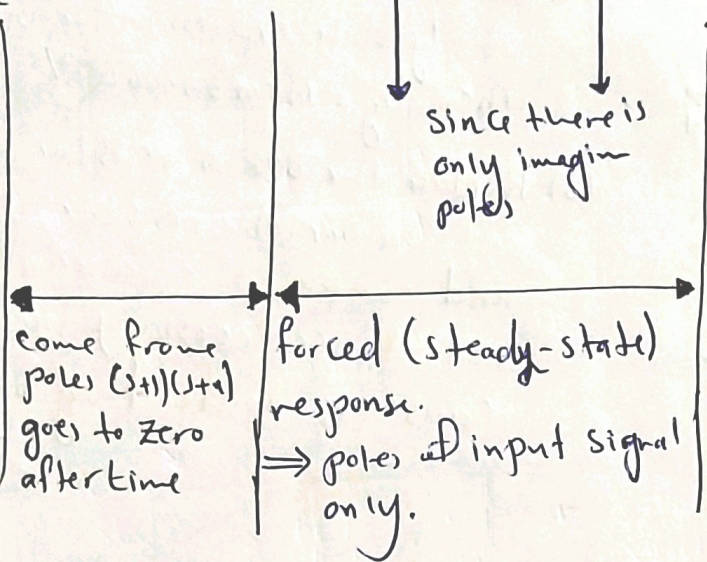 since there is
only imagin
poles
come frome
poles (s+1)(s+4)
goes to zero
after time
forced (steady-state)
response.
⇒ poles of input signal
only.